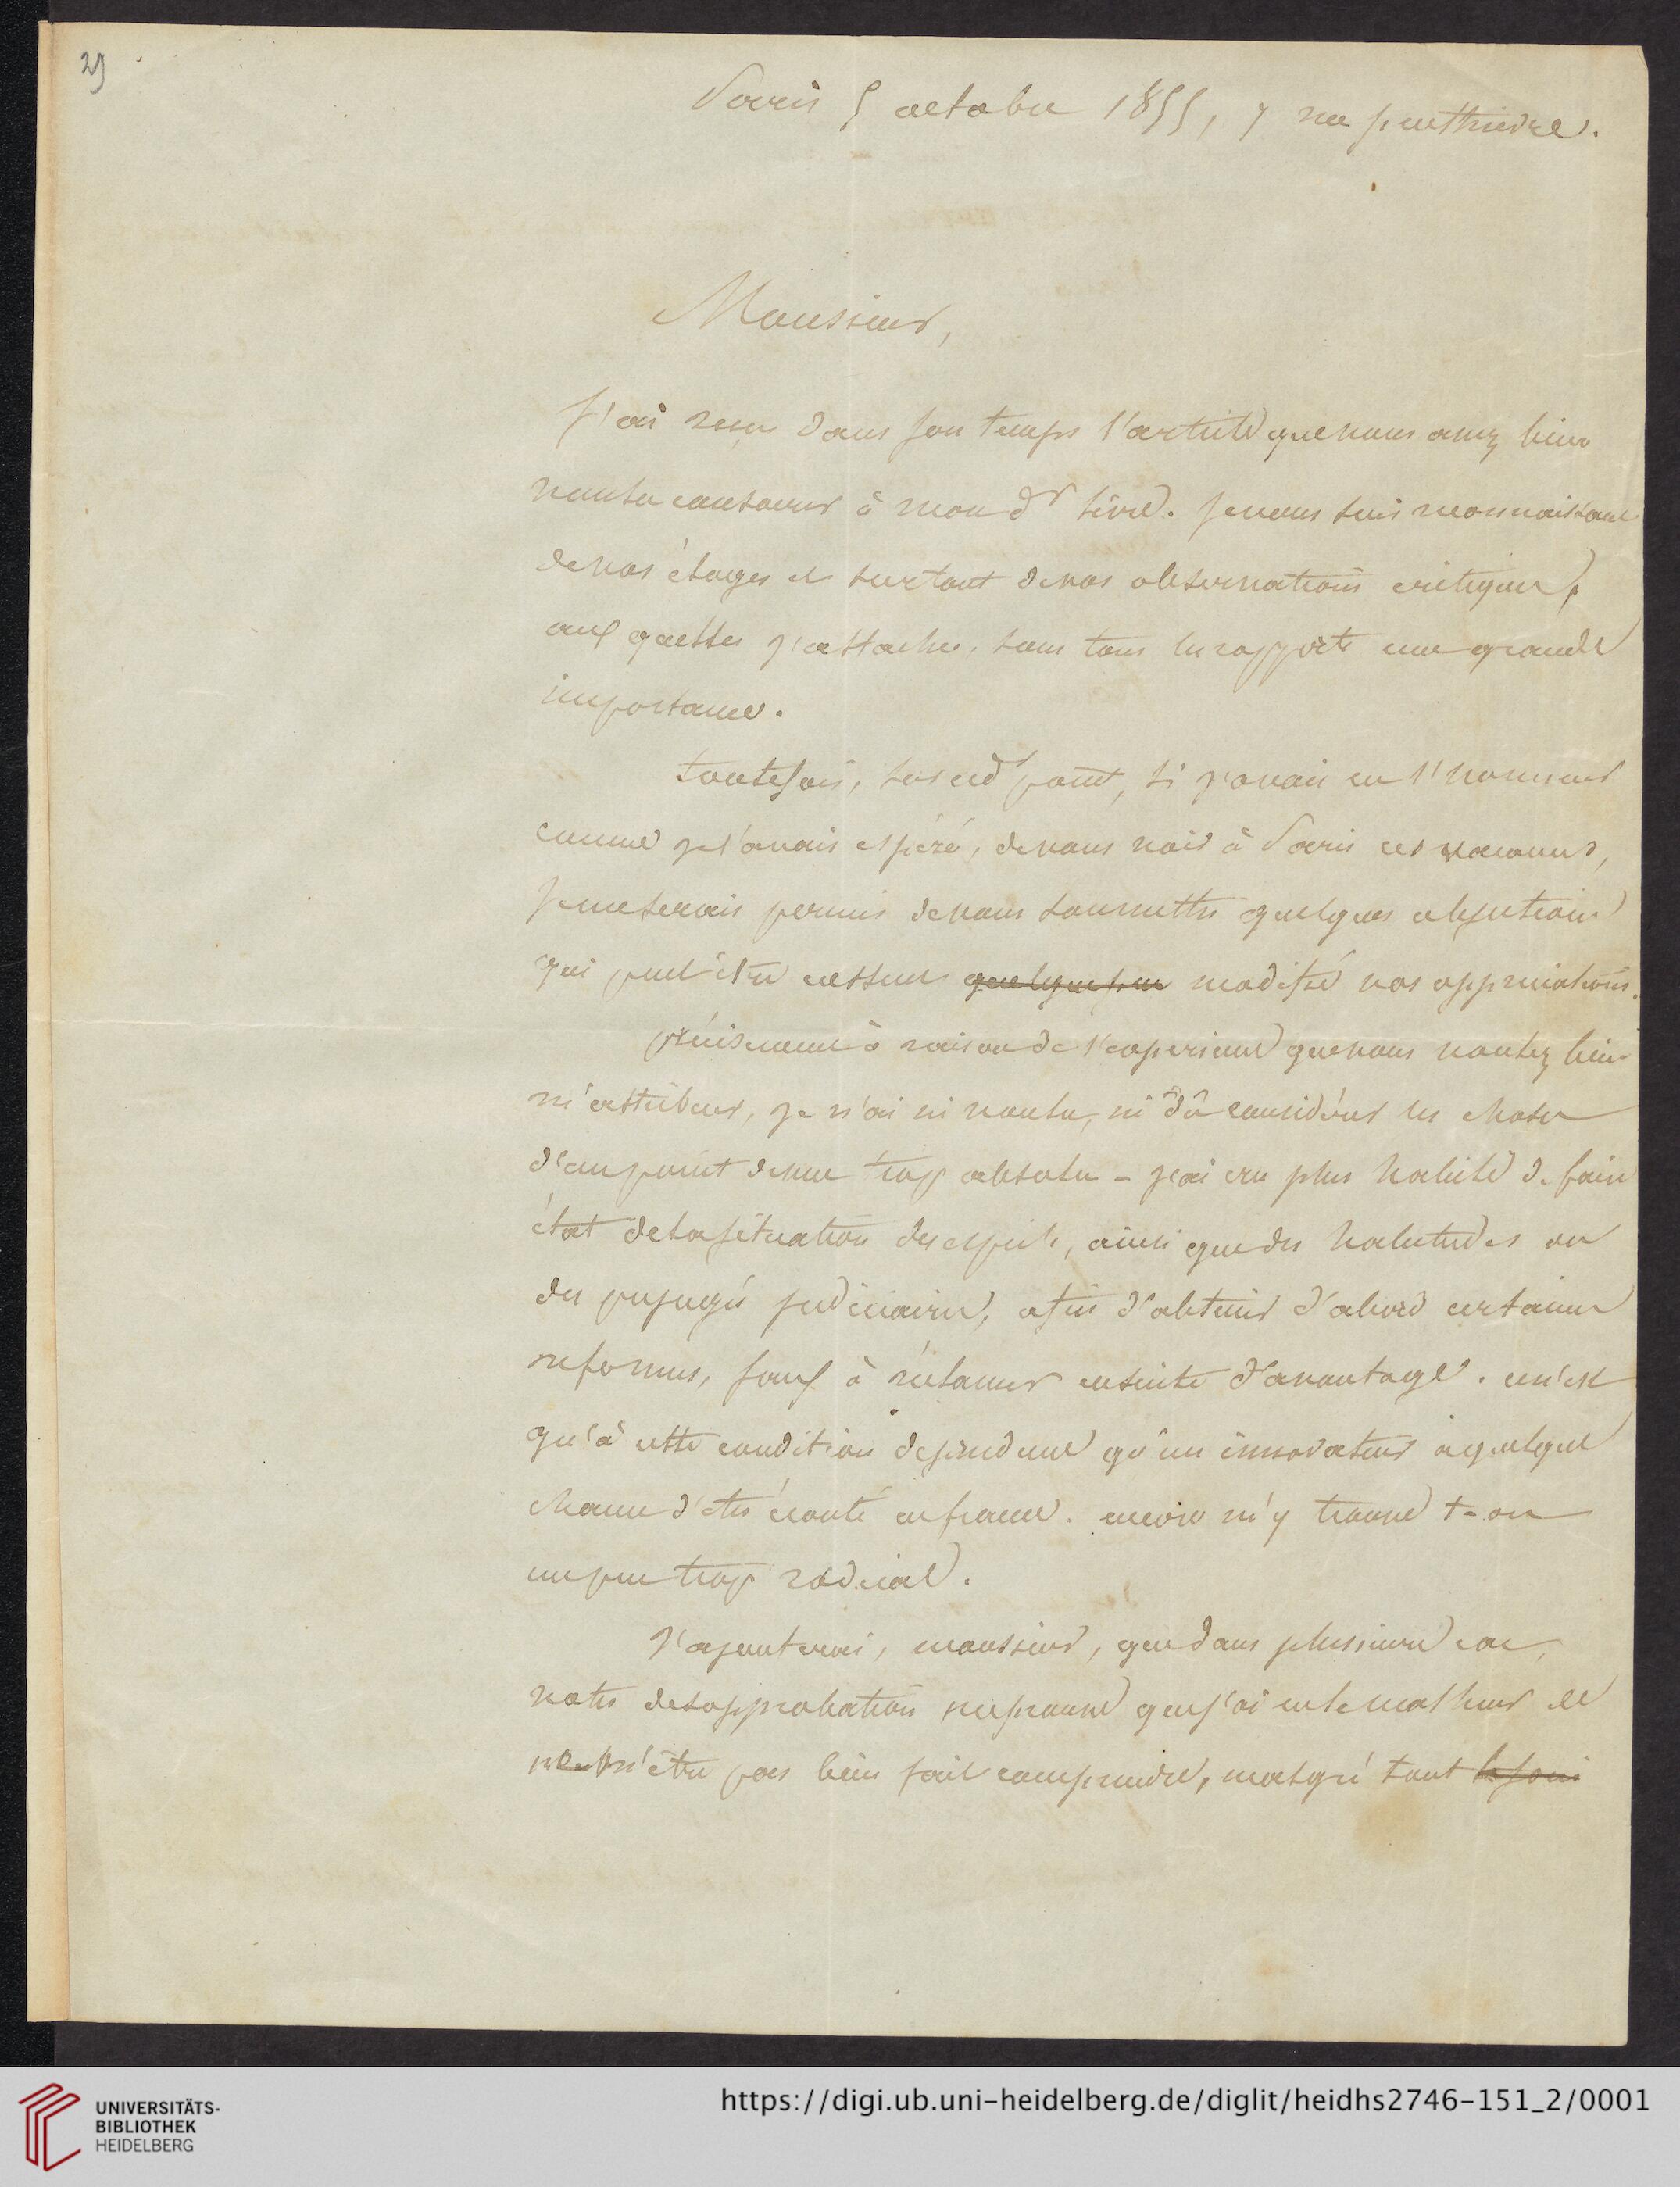 29
Paris 5 octobre 1855, 7 rue penthievre.
Monsieur,
J'ai reçu dans son temps l'article que vous avez bien
voulu consacrer à mon dr livre. Je vous suis reconnaissant
de vos éloges et surtout de vos observations critiques,
aux quelles j'attache, sous tous les rapports une grande
importance.
toutefois, sur ced point, si j'avais eu l'honneur
comme je l'avais espéré, de vous voir à Paris ces vacances,
je me serais permis de vous soumettre quelques objections
qui peut être eussent quelque peu modifié vos appreciations.
précisement à raison de l'experience que vous voulez bien
m'attribuer, je n'ai ni voulu, ni dû considérer les choses
d'un point de vue trop absolu - j'ai cru plus habile de faire
état de la situation des esprits, ainsi que des habitudes ou
des prejugés judiciaires, afin d'obtenir d'abord certaines
reformes, sauf à réclamer ensuite d'avantage. ce n'est
qu'à cette condition de prudence qu'un innovateur a quelque
chance d'être écouté en france. encore m'y trouve t-on
un peu trop radical.
J'ajouterai, monsieur, que dans plusieurs cas,
votre desapprobation me prouve que j'ai eu le malheur de
ne m'être pas bien fait comprendre, malgré tout le soin
UNIVERSITÄTS-
BIBLIOTHEK
HEIDELBERG
https://digi.ub.uni-heidelberg.de/diglit/heidhs2746-151_2/0001